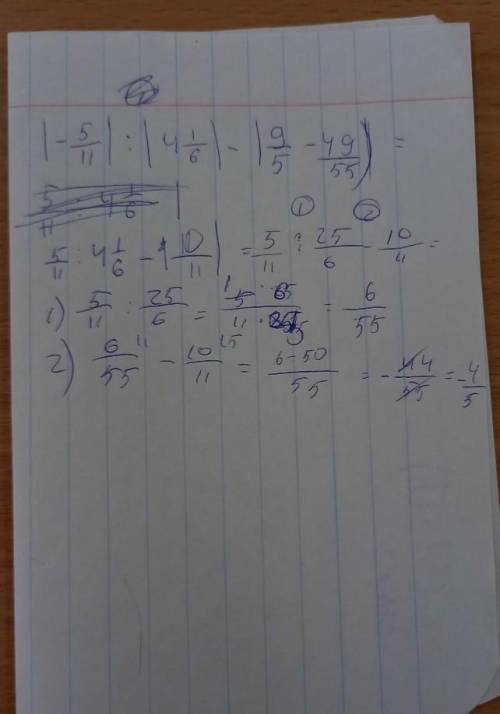 |-5/11| : |4 1/6| - |9/5 - 49/55| =
5/11 : 4 1/6 - |10/11| = 5/11 : 25/6 - 10/11 =
1) 5/11 : 25/6 = 5·6/11·25 = 6/55
2) 6/55 - 10/11 = 6-50/55 = -44/55 = -4/5